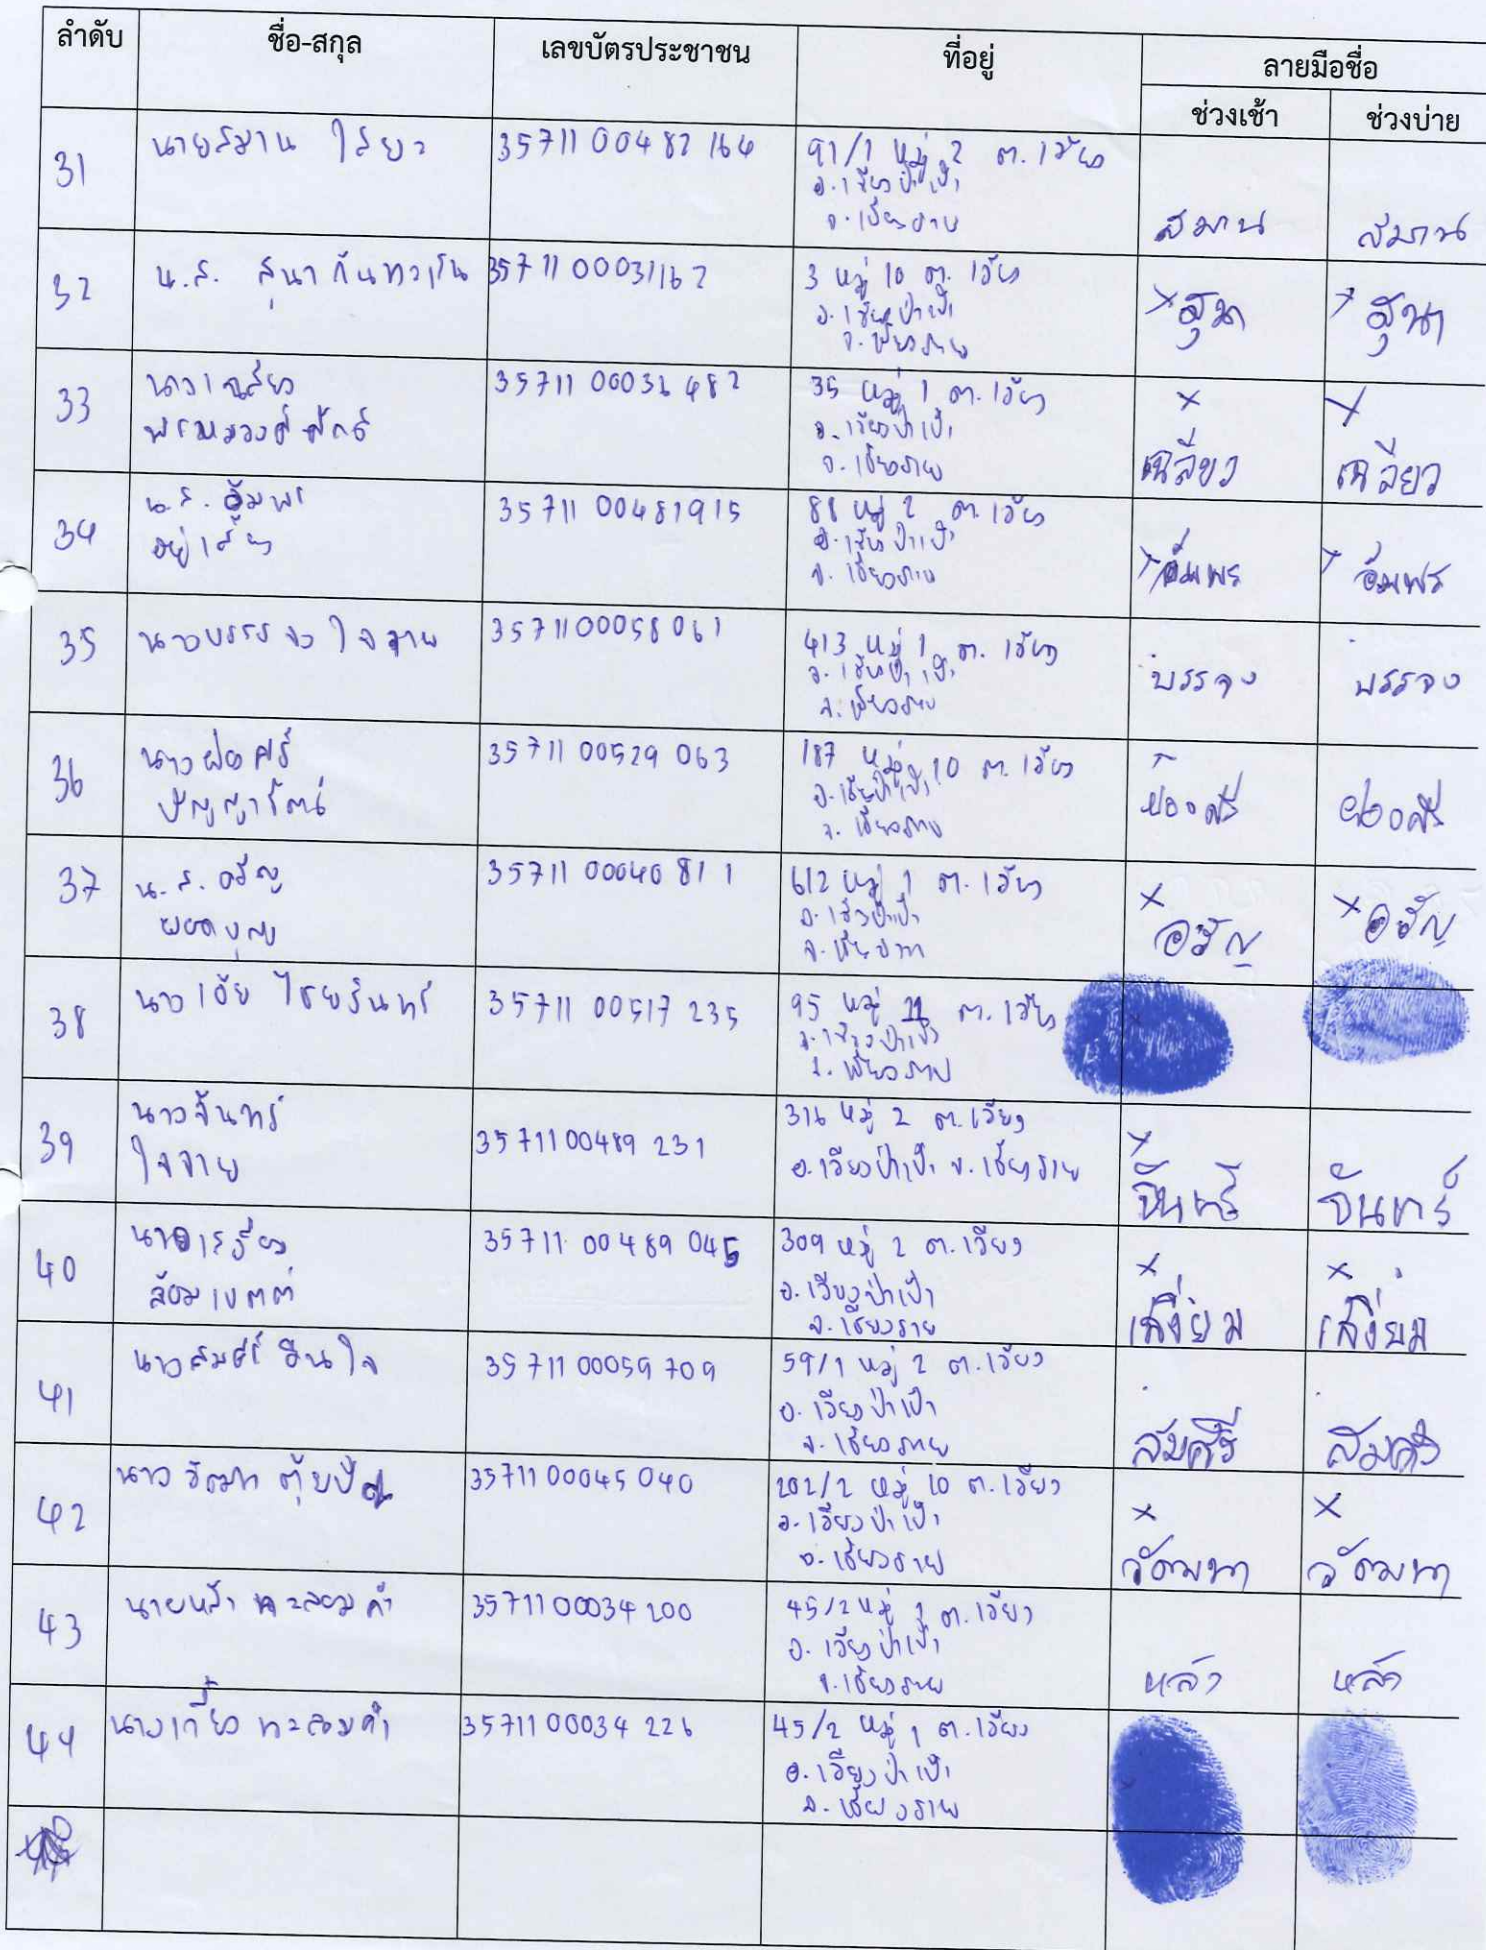 ลำดับ ชื่อ-สกุล เลขบัตรประชาชน ที่อยู่ ลายมือชื่อ
ช่วงเช้า ช่วงบ่าย
31 นายสมาน 91/1 หมู่ 2 ต.เวียง
อ.เวียงป่าเป้า
จ.เชียงราย
สมาน สมาน
32 น.ส. สุนา 3571100031162 3 หมู่ 10 ต.เวียง
อ.เวียงป่าเป้า
จ.เชียงราย
x สุนา x สุนา
33 นางเฉลียว 35 หมู่ 1 ต.เวียง
พรหมวงศ์ศักดิ์ อ.เวียงป่าเป้า
จ.เชียงราย
x x
เฉลียว เฉลียว
34 น.ส. อัมพร 3571100481915 88 หมู่ 2 ต.เวียง
อ.เวียงป่าเป้า
จ.เชียงราย
x อัมพร x อัมพร
35 นางบรรจง ใจจาย 3571100058061 413 หมู่ 1 ต.เวียง
อ.เวียงป่าเป้า
จ.เชียงราย
บรรจง บรรจง
36 นางฝอยศรี 3571100529063 187 หมู่ 10 ต.เวียง
ปัญญารัตน์ อ.เวียงป่าเป้า
จ.เชียงราย
37 น.ส. อรัญ 612 หมู่ 1 ต.เวียง
อ.เวียงป่าเป้า
จ.เชียงราย
x อรัญ x อรัญ
38 นางเอ้ย ไชยรินทร์ 3571100517235 95 หมู่ 11 ต.เวียง
อ.เวียงป่าเป้า
จ.เชียงราย
39 นางจันทร์ 316 หมู่ 2 ต.เวียง
ใจจาย 3571100489231 อ.เวียงป่าเป้า จ.เชียงราย
x
จันทร์ จันทร์
40 3571100489045 309 หมู่ 2 ต.เวียง
อ.เวียงป่าเป้า
จ.เชียงราย
x x
เสงี่ยม เสงี่ยม
41 นางสมศรี อินใจ 3571100059709 59/1 หมู่ 2 ต.เวียง
อ.เวียงป่าเป้า
จ.เชียงราย
สมศรี สมศรี
42 นางวัฒนา 3571100045040 202/2 หมู่ 10 ต.เวียง
อ.เวียงป่าเป้า
จ.เชียงราย
x x
วัฒนา วัฒนา
43 นายหล้า 3571100034200 45/2 หมู่ 1 ต.เวียง
อ.เวียงป่าเป้า
จ.เชียงราย
หล้า หล้า
44 นางเกี้ยว ทะลอมคำ 3571100034226 45/2 หมู่ 1 ต.เวียง
อ.เวียงป่าเป้า
จ.เชียงราย